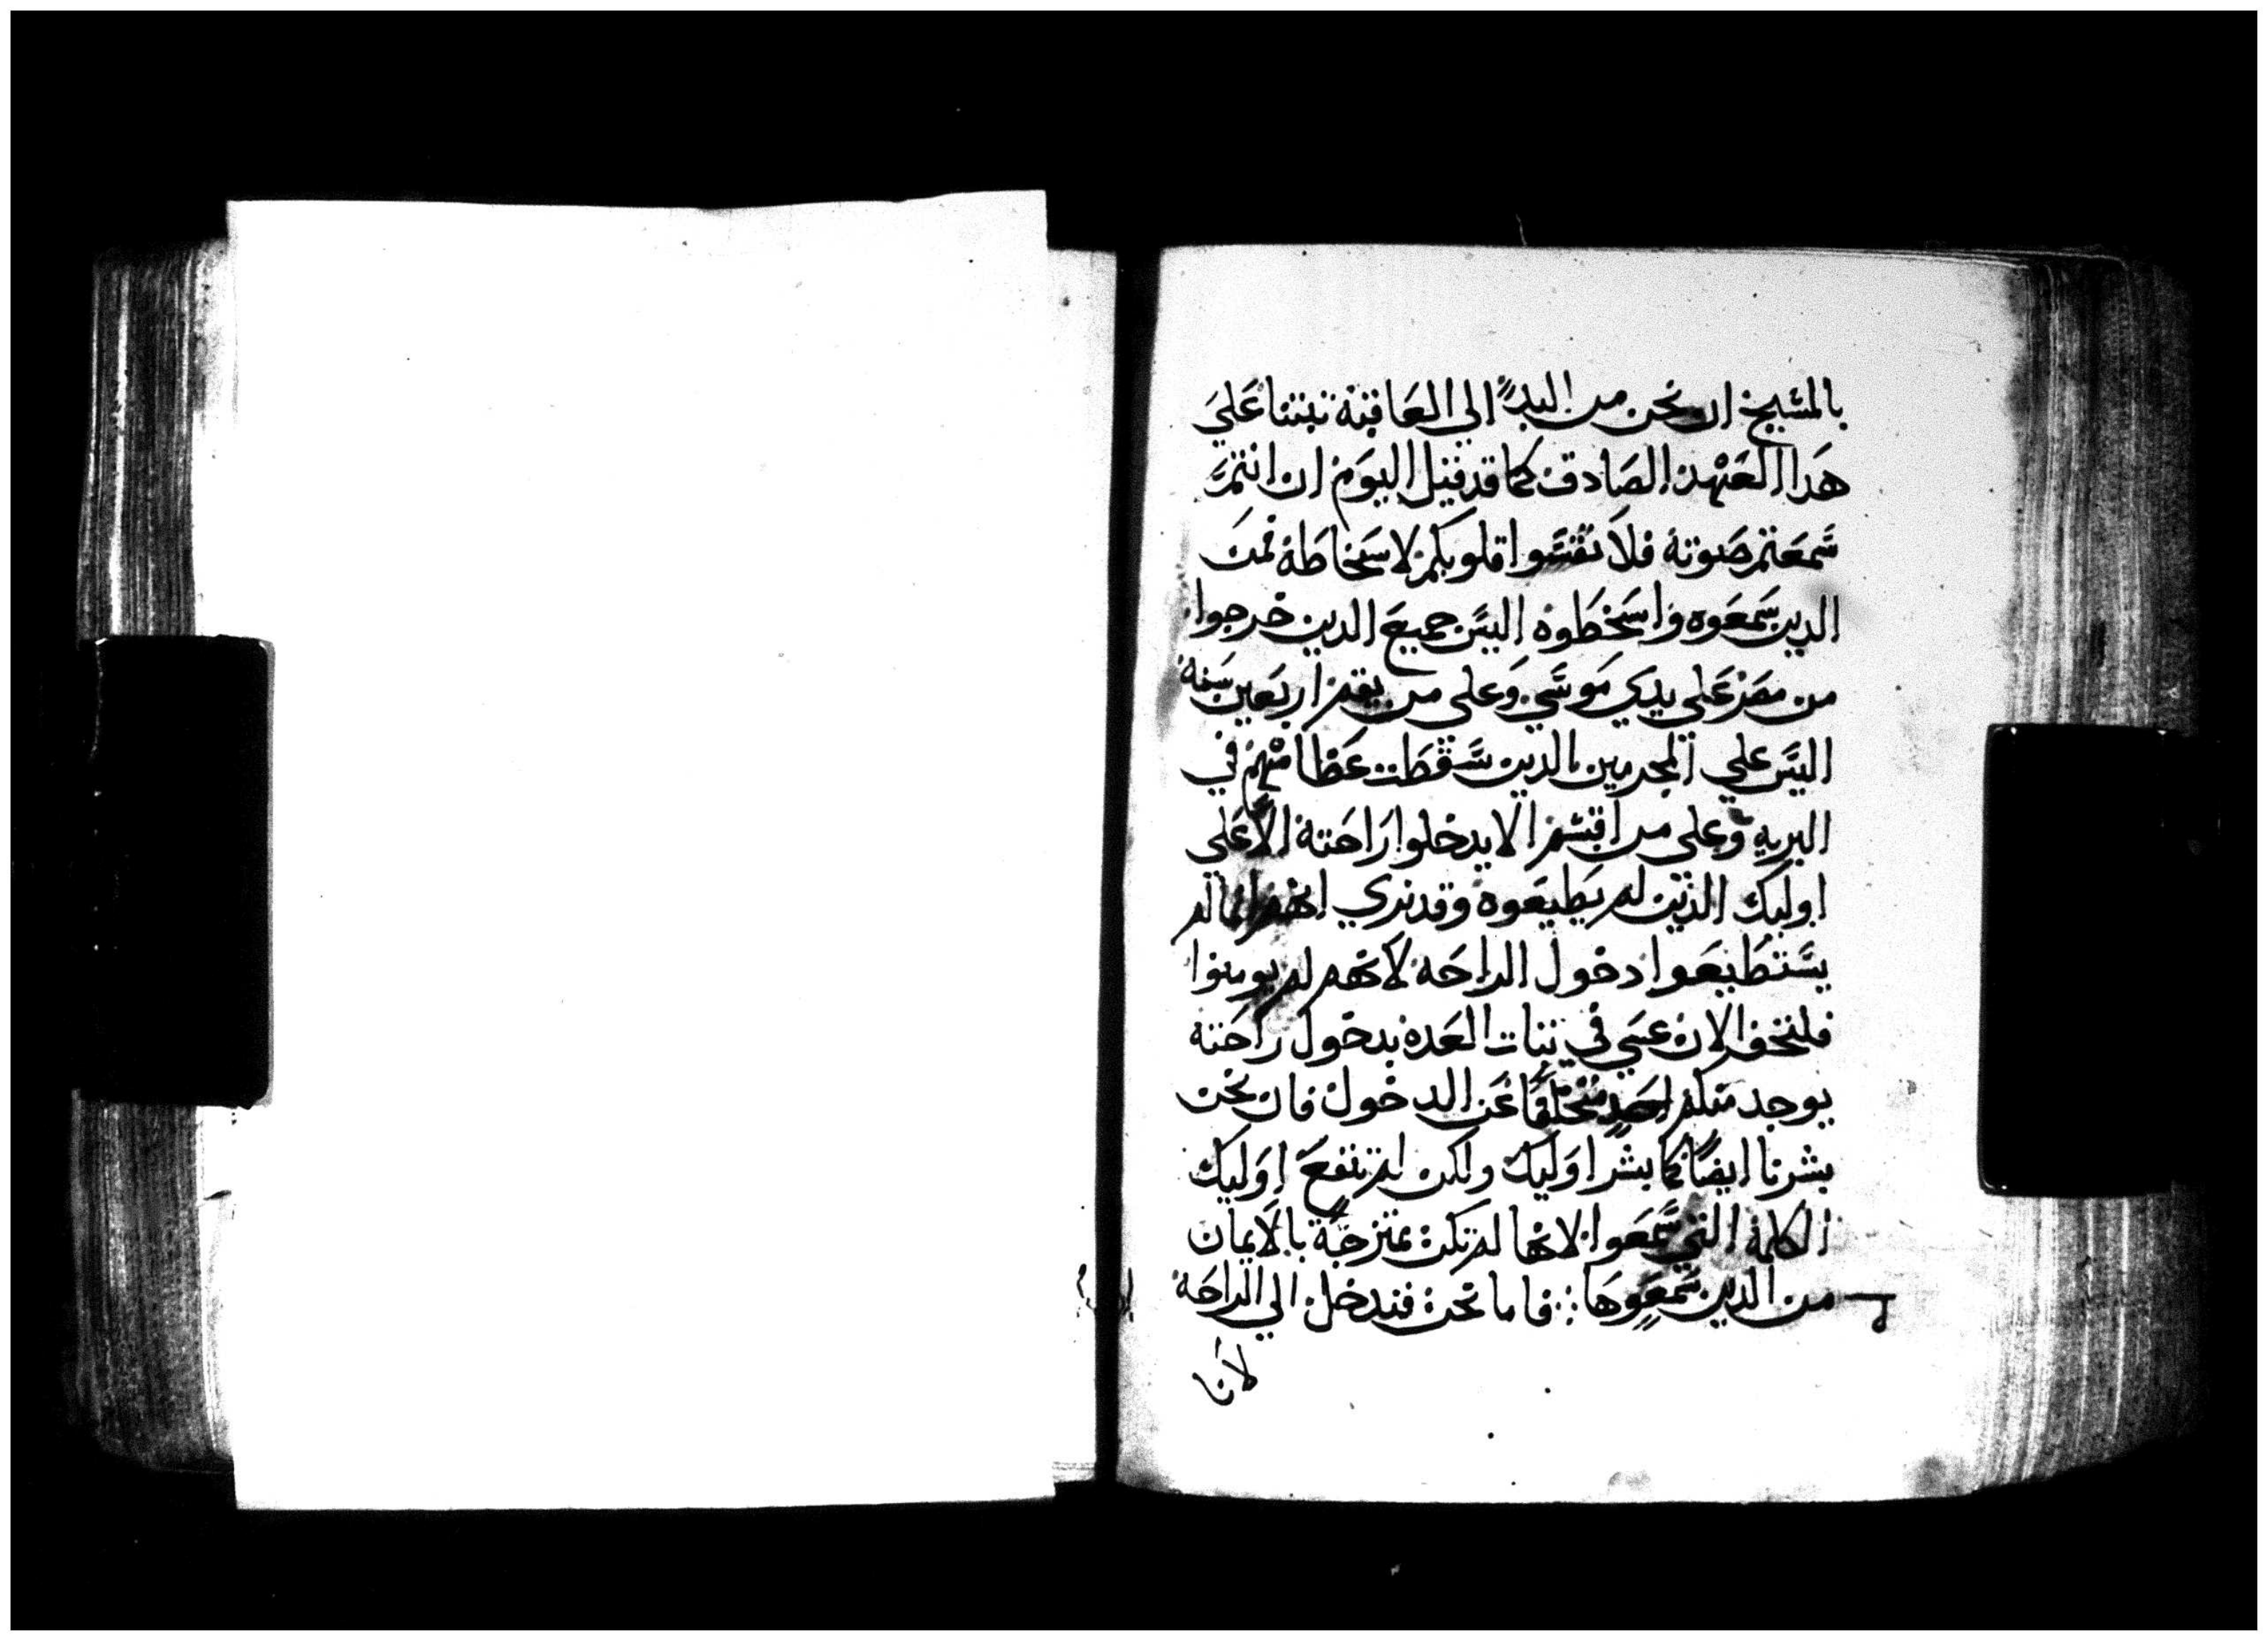 بالمسيح ان نحن من البدءً الي العاقبة تبتنا علي
هدا العهد الصادق كما قد قيل اليوم ان انتم
سمعتم صوته فلا تقسوا قلوبكم لاسخاطه فمن
الدين سمعوه واسخطوه اليس جميع الدين خرجوا
من مصر علي يدي موسي وعلي من يقم اربعين سنة
اليس علي المجرمين الدين سقطت عظامهم في
البريه وعلي من اقسم الا يدخلوا راحته الا علي
اوليك الذين لم يطيعوه وقد نري انهم انما لم
يستطيعوا دخول الراحه لانهم لم يومنوا
فلنخف الان عسي في تبات العده بدخول راحته
يوجد منكم احد متخلفا عن الدخول فان نحن
بشرنا ايضًا كما بشر اوليك ولكن لم تنفع اوليك
الكلمة التي سمعوا لانها لم تكن ممتزجة بالايمان
من الدين سمعوها ⁘ فاما نحن فندخل الي الراحه
لانا